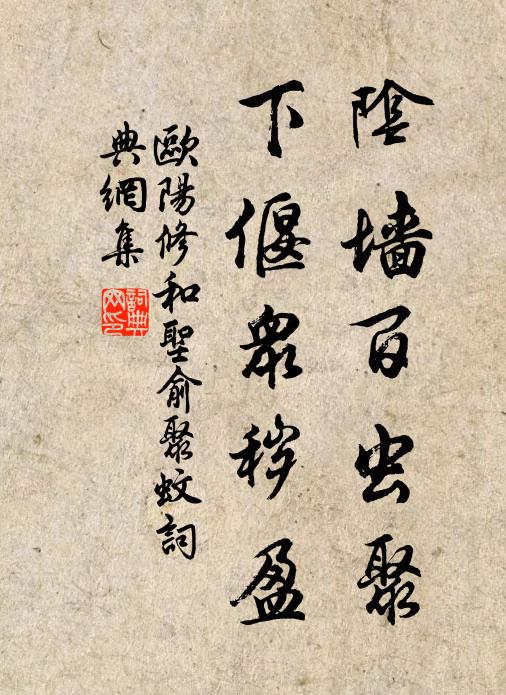 陰墻百虫聚
下偃衆秽盈
歐陽修和聖俞聚蚊詞
典網集
詞典
网印